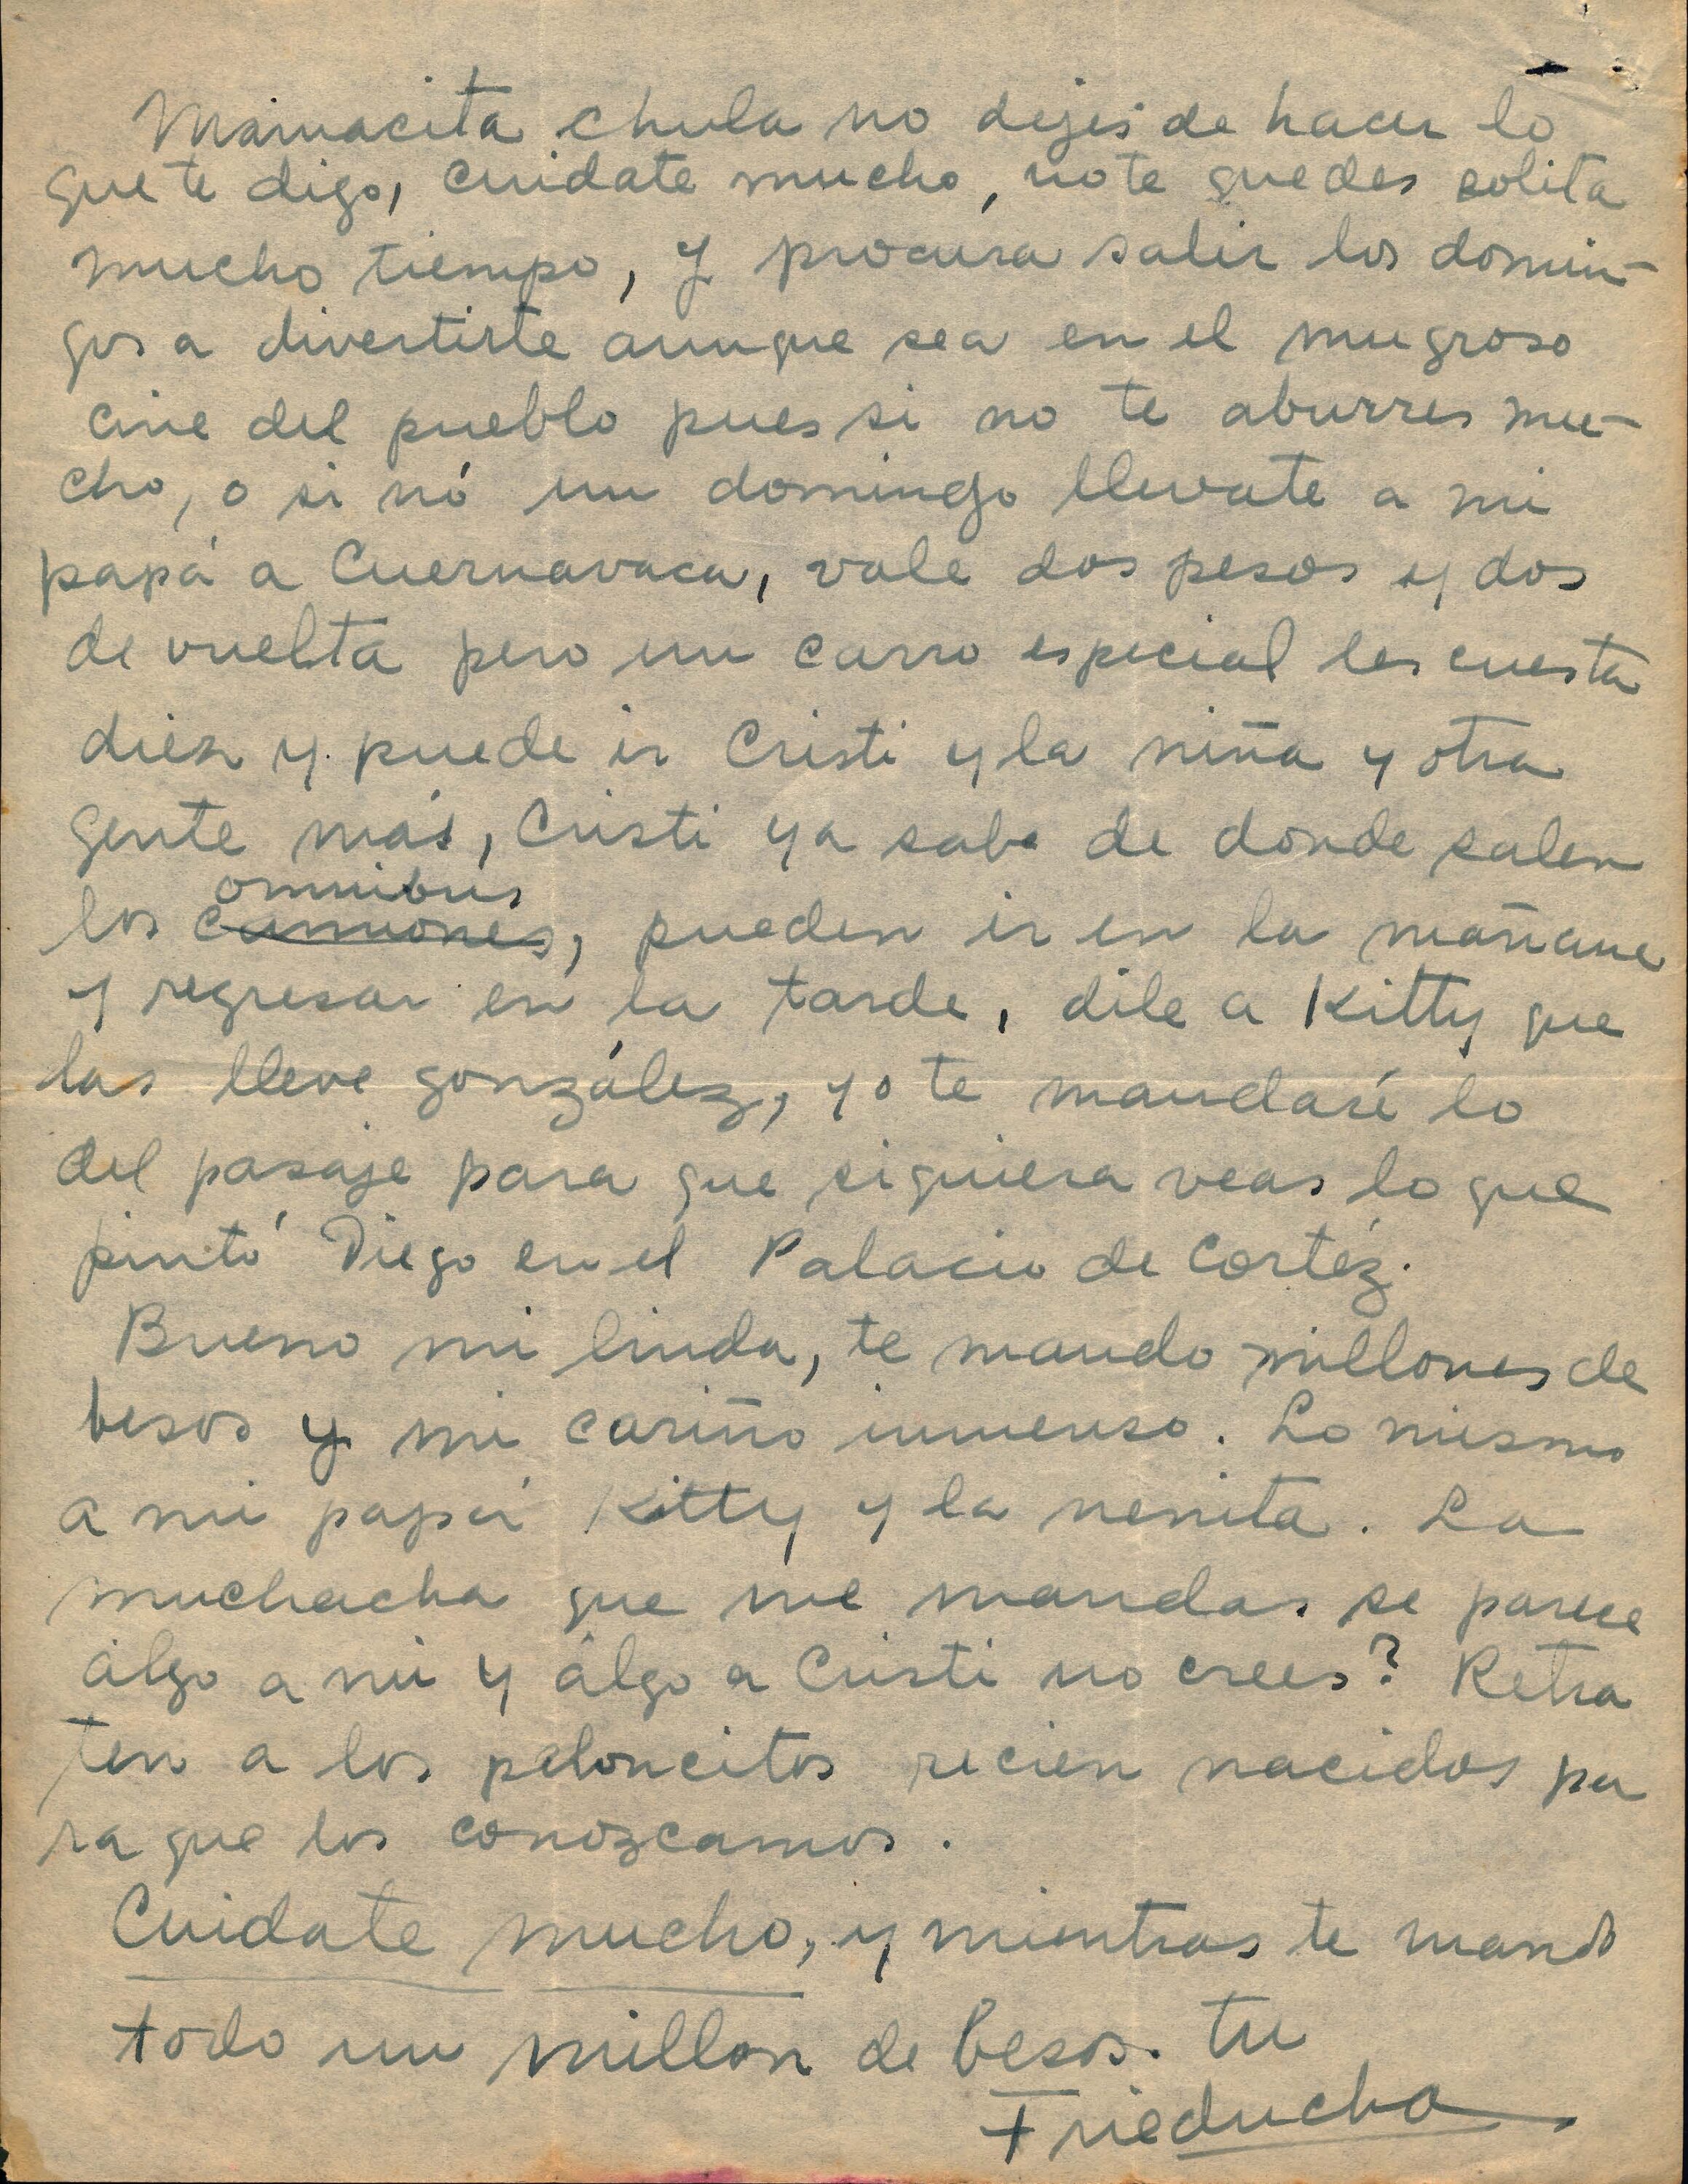 Mamacita chula no dejes de hacer lo
que te digo, cuidate mucho, no te quedes solita
mucho tiempo, y procura salir los domin-
gos a divertirte aunque sea en el mugroso
cine del pueblo pues si no te aburres mu-
cho, o si nó un domingo llevate a mi
papá a Cuernavaca, vale dos pesos y dos
de vuelta pero un carro especial les cuesta
diez y puede ir Cristi y la niña y otra
gente más, Cristi ya sabe de donde salen
omnibus
los camiones, pueden ir en la mañana
y regresar en la tarde, dile a Kitty que
las lleve gonzález, yo te mandaré lo
del pasaje para que siquiera veas lo que
pintó Diego en el Palacio de Cortéz.
Bueno mi linda, te mando millones de
besos y mi cariño inmenso. Lo mismo
a mi papá Kitty y la nenita. La
muchacha que me mandas se parece
álgo a mi y álgo a Cristi no crees? Retra
ten a los peloncitos recien nacidos pa
ra que los conozcamos.
Cuidate mucho, y mientras te mando
todo un millon de besos. tu
Frieducha